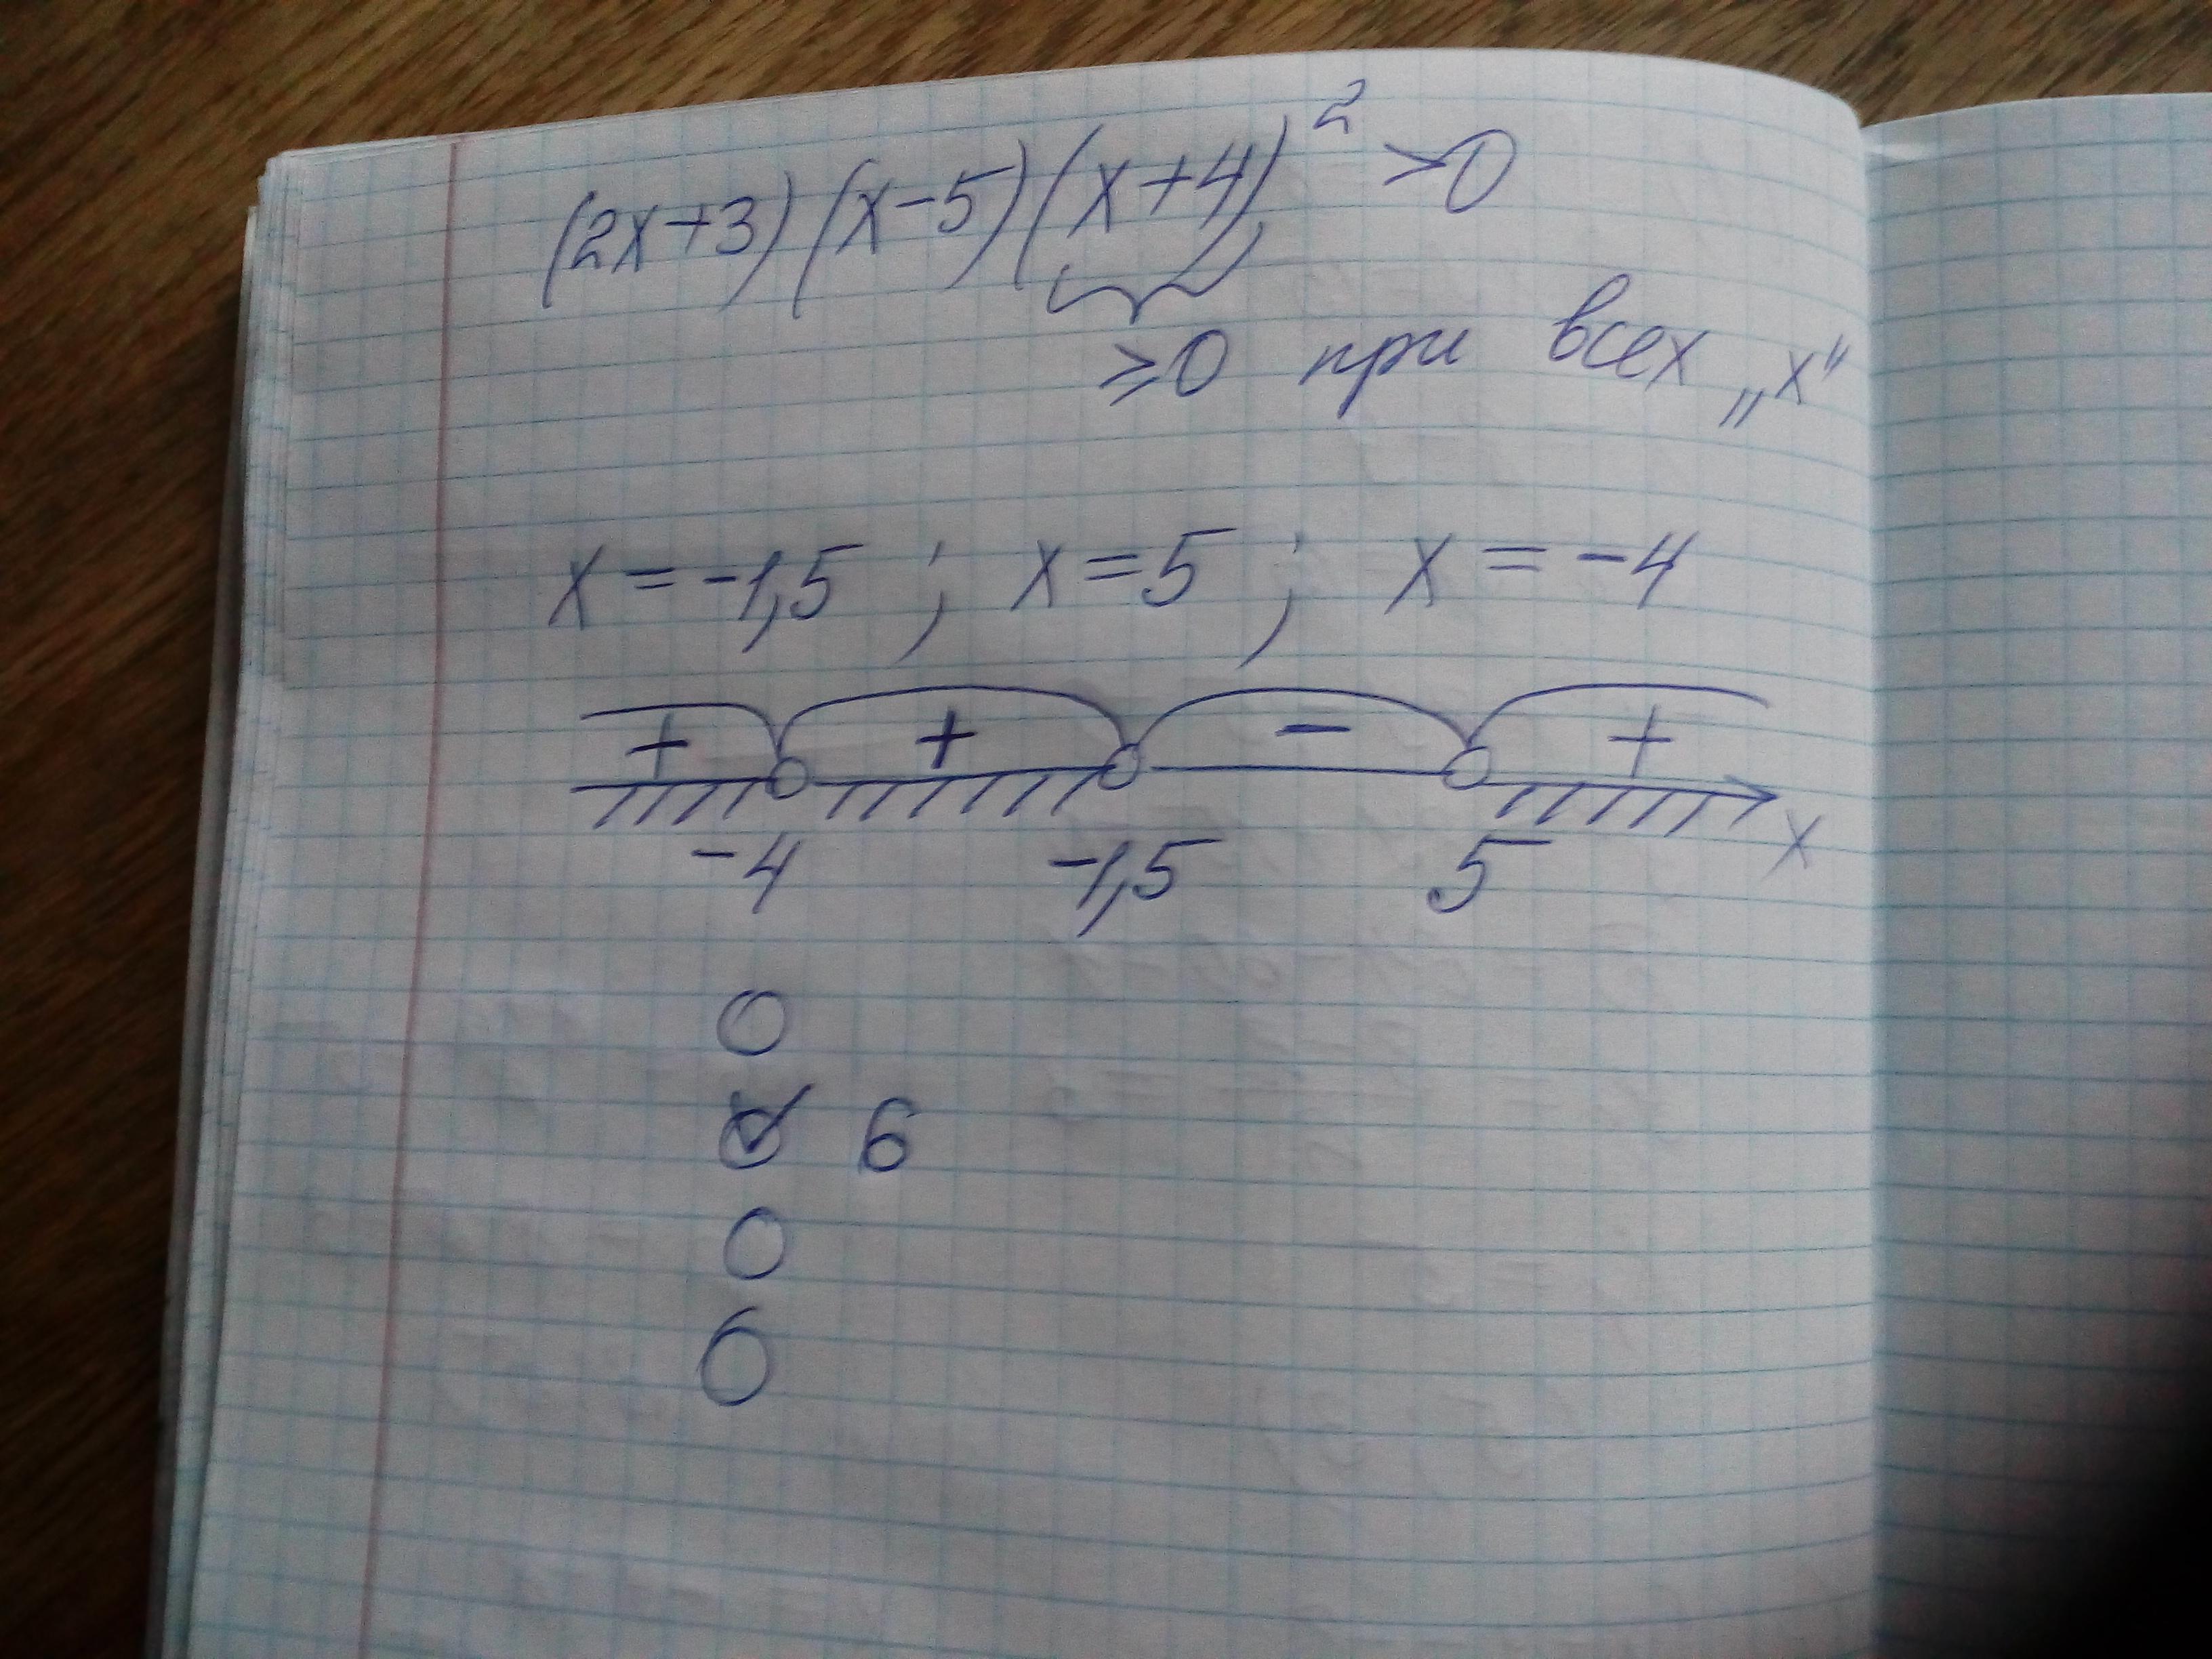 (2x+3)(x-5)(x+4)² >0
≥0 при всех „x"
x = -1,5 ; x = 5 ; x = -4
+ + − +
-4 -1,5 5 x
6